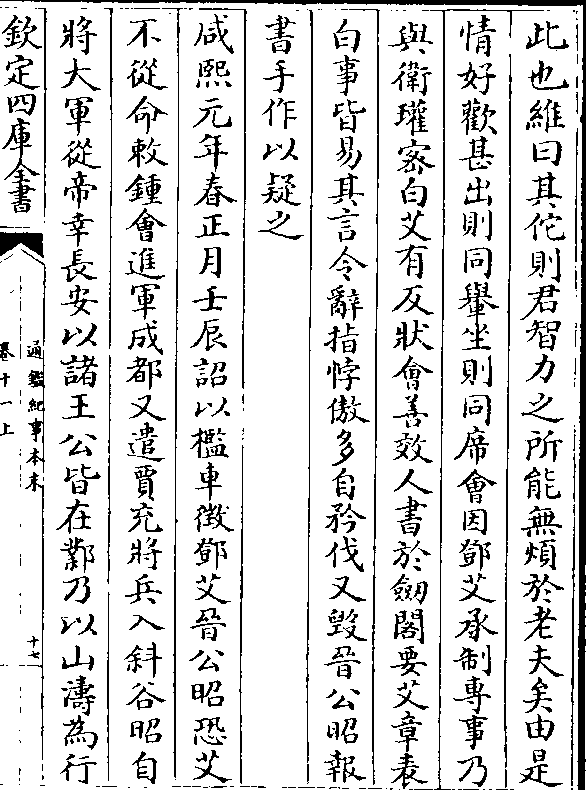 此也維曰其佗則君智力之所能無煩於老夫矣由是
情好歡甚出則同轝坐則同席會因鄧艾承制專事乃
與衛瓘宻白艾有反狀會善效人書於劒閣要艾章表
白事皆易其言令辭指悖傲多自矜伐又毁晉公昭報
書手作以疑之
咸熙元年春正月壬辰詔以檻車徴鄧艾晉公昭恐艾
不從命敕鍾會進軍成都又遣賈充將兵入斜谷昭自
將大軍從帝幸長安以諸王公皆在鄴乃以山濤為行
欽定四庫全書
通鑑紀事本末
卷十一上
十七